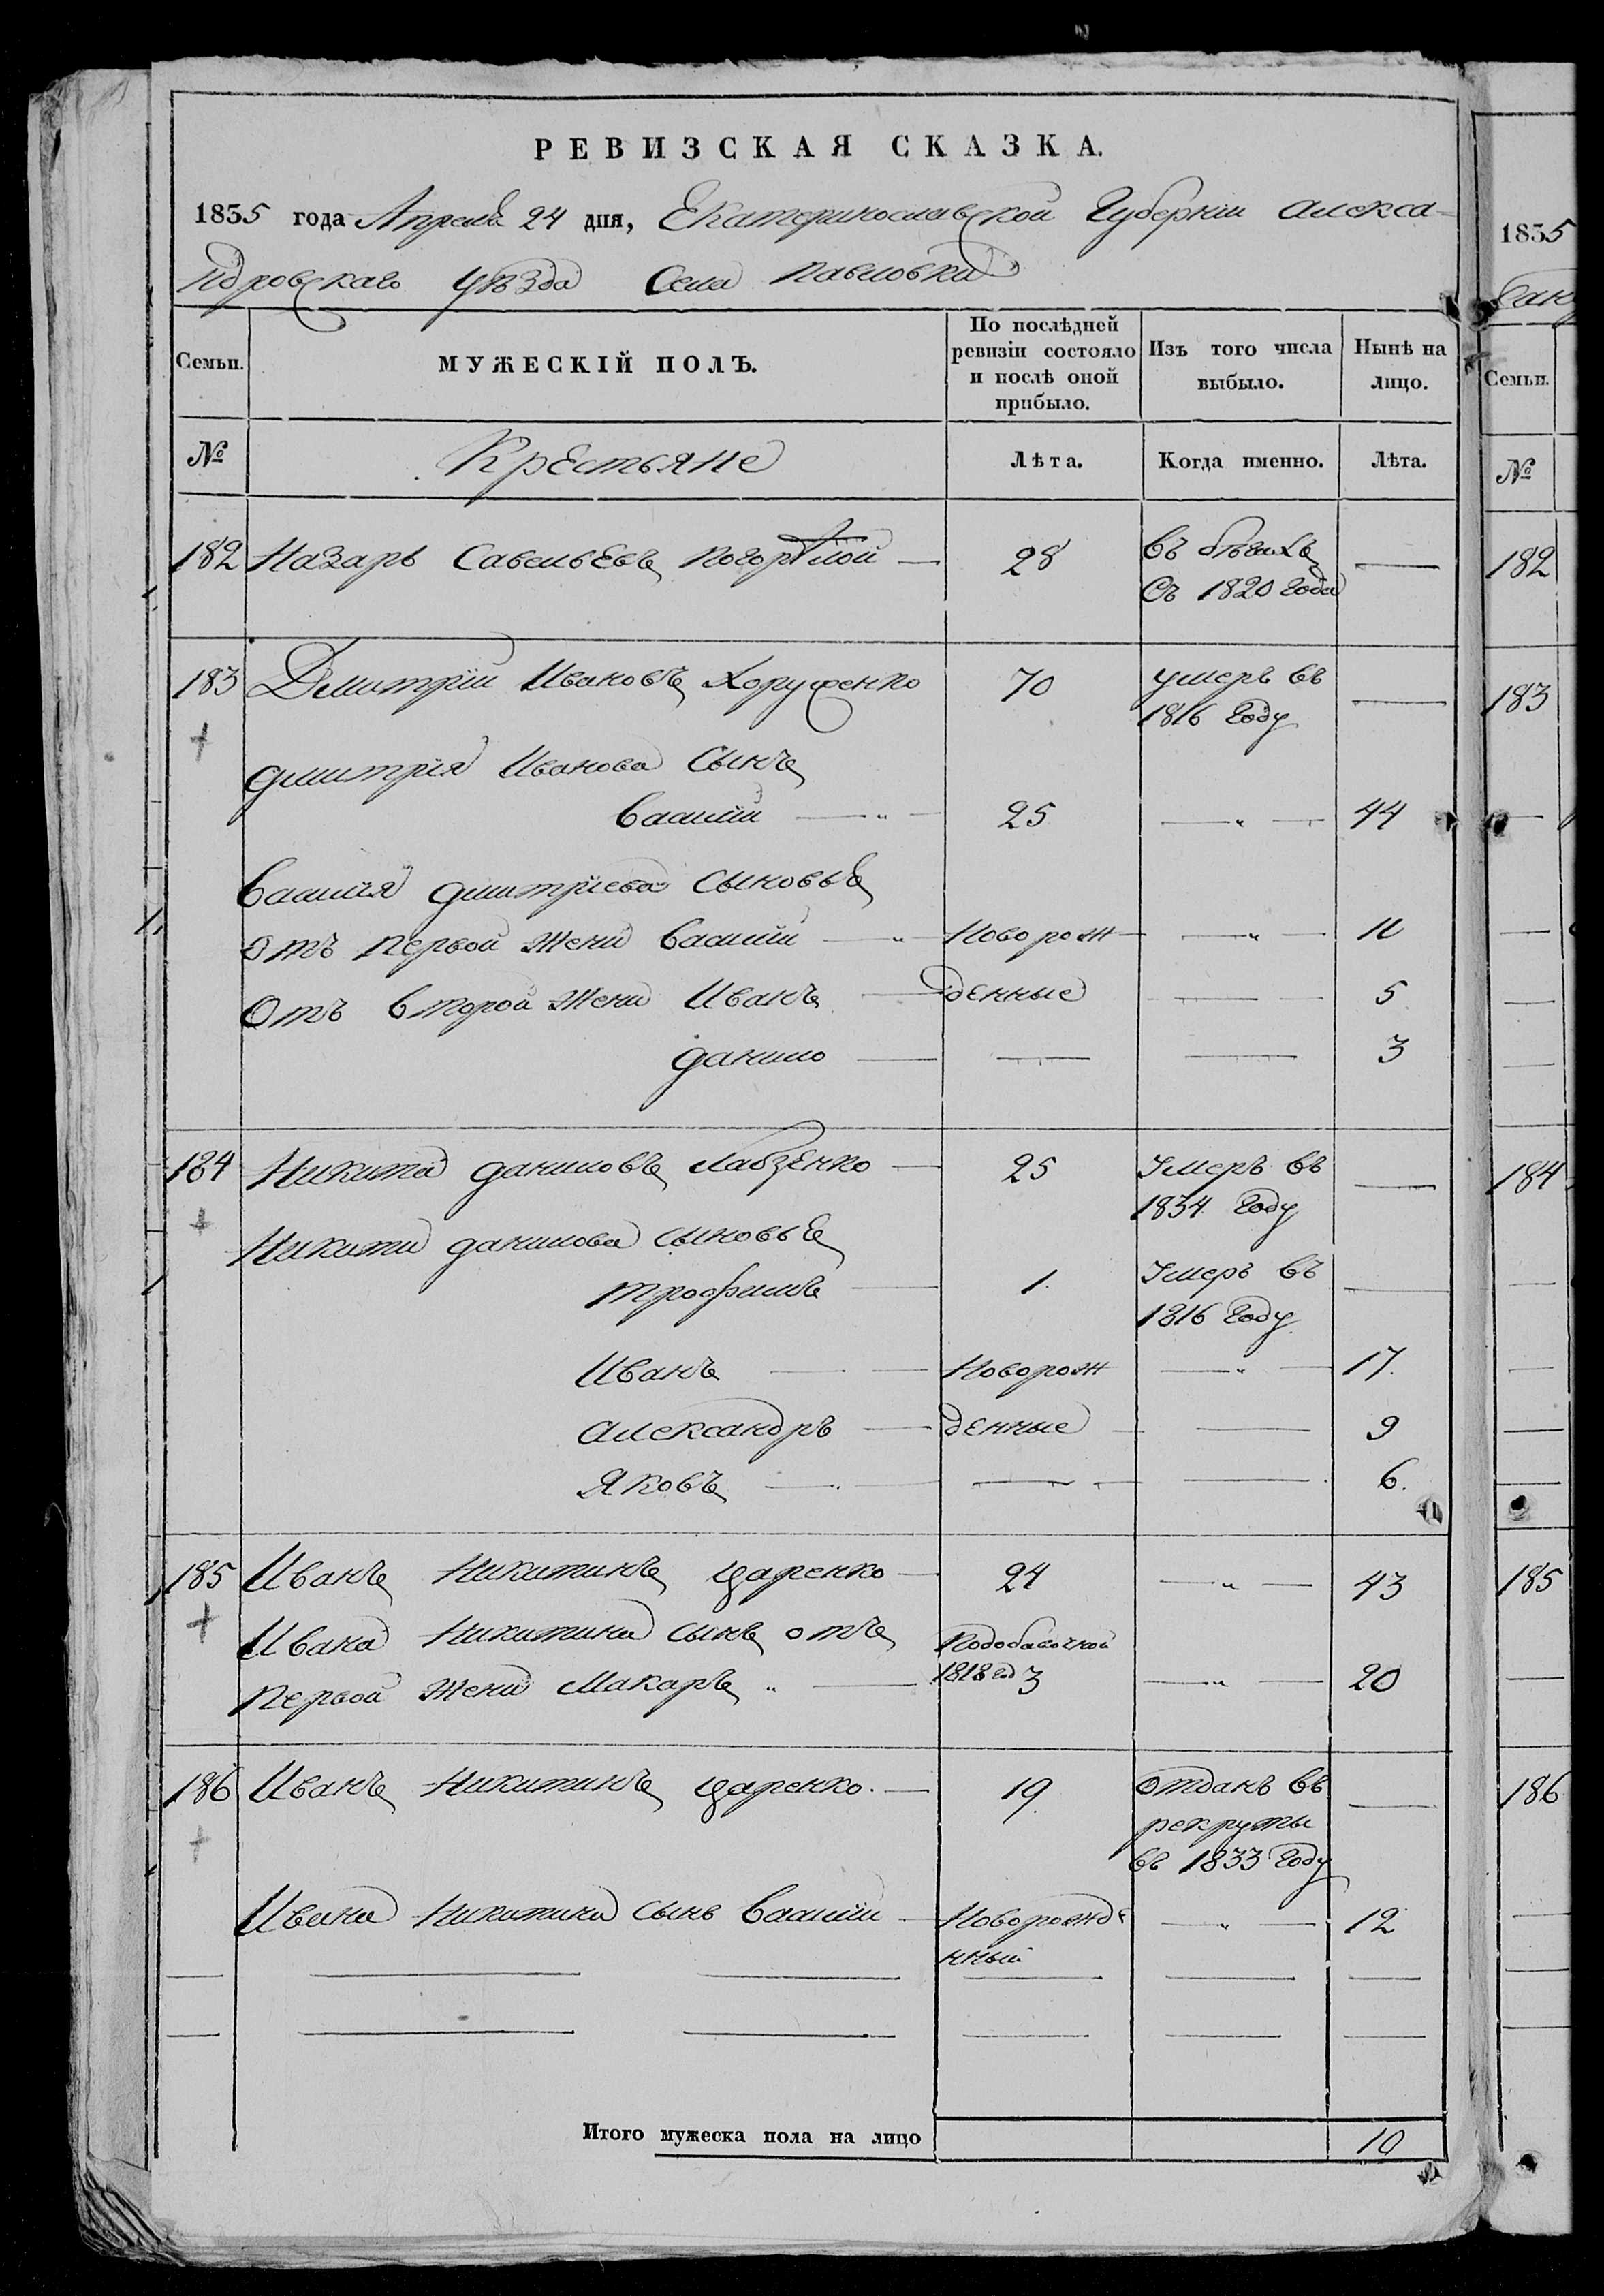 РЕВИЗСКАЯ СКАЗКА.
1835 года Апреля 24 дня, Екатеринославской Губернии Алекса-
ндровскаго уѣзда Села Павловки
Семьи. МУЖЕСКІЙ ПОЛЪ. По послѣдней ревизіи состояло и послѣ оной прибыло. Изъ того числа выбыло. Нынѣ на лицо.
№ Крестьяне Лѣта. Когда именно. Лѣта.
182 Назаръ Савельевъ Погорѣлой — 28 въ бѣгахъ —
съ 1820 года
183 Дмитрій Ивановъ Хоруженко 70 умеръ въ —
1816 году
Дмитрія Иванова сынъ
Василій — „ — 25 — „ — 44
Василія Дмитріева сыновья
отъ первой жены Василій — „ — Новорож — „ — 11
отъ второй жены Иванъ — денные — 5
Данило — — — 3
184 Никита Даниловъ Лабзенко — 25 Умеръ въ —
1834 году
Никиты Данилова сыновья
Трофимъ — 1. Умеръ въ —
1816 году
Иванъ — Новорож — „ — 17.
Александръ — денные — 9
Яковъ — — — 6.
185 Иванъ Никитинъ Царенко — 24 — „ — 43
Ивана Никитина сынъ отъ По добавочной
первой жены Макаръ „ — 1818 год 3 — „ — 20
186 Иванъ Никитинъ Царенко. — 19. Отданъ въ —
рекруты
въ 1833 году
Ивана Никитина сынъ Василій — Новорожде — „ — 12
нный
Итого мужеска пола на лицо 10
1835
Семьи.
№
182
183
184
185
186